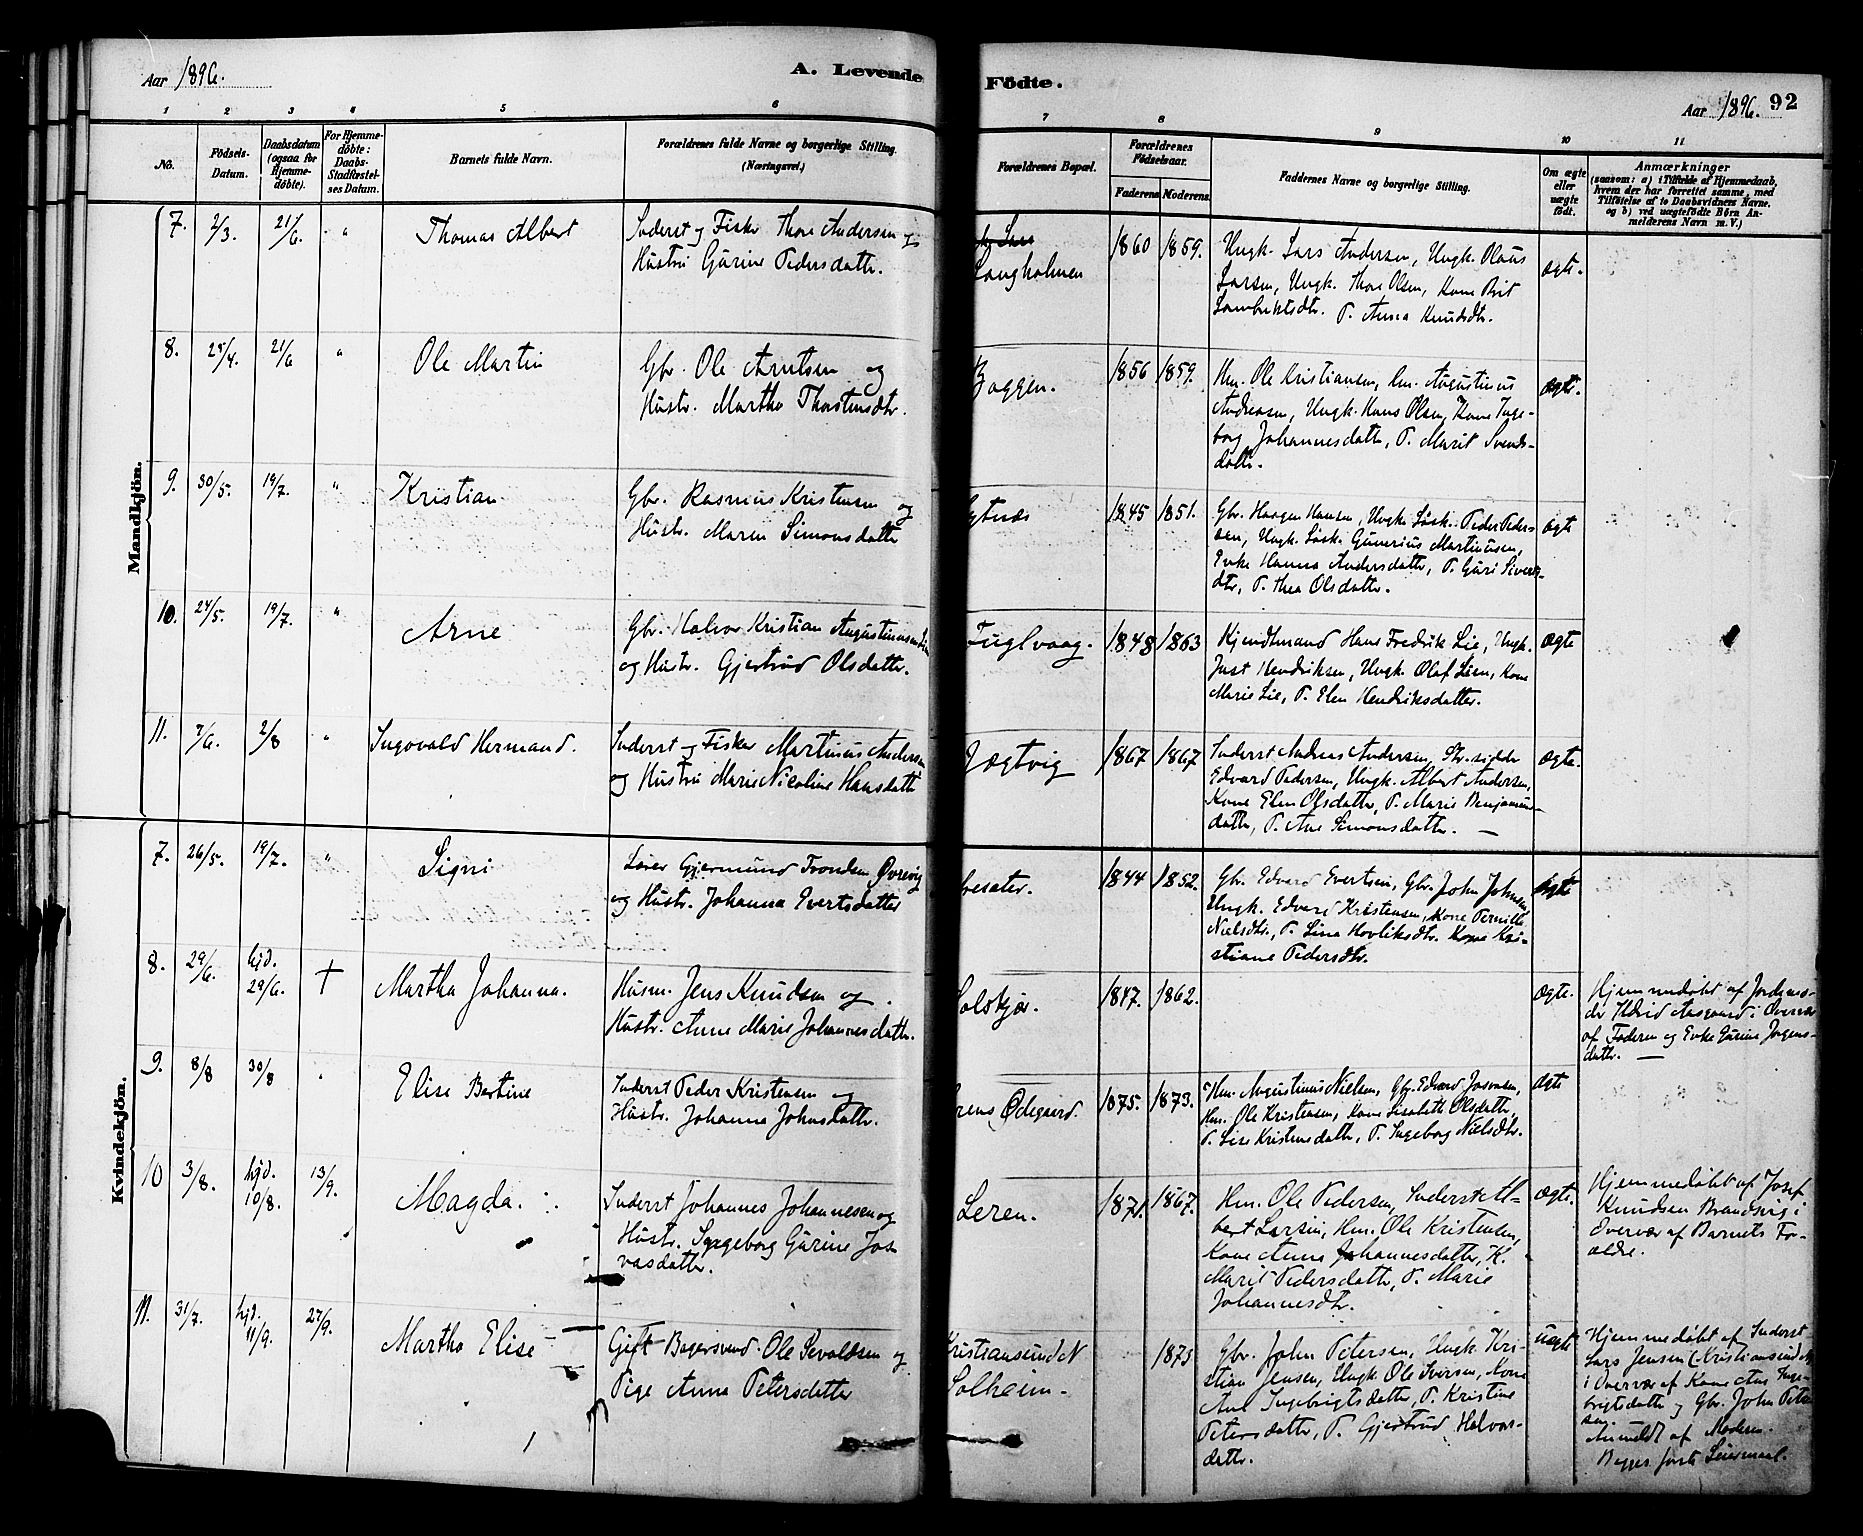 Aar 1896.
A. Levende Födte.
Aar 1896. 92
1 2 3 4 5 6 7 8 9 10 11
No.
Födsels-
Datum.
Daabsdatum
(ogsaa for
Hjemme-
döbte).
For Hjemme-
döbte:
Daabs-
Stadfæstel-
ses Datum.
Barnets fulde Navn.
Forældrenes fulde Navne og borgerlige Stilling.
(Næringsvei.)
Forældrenes Bopæl.
Forældrenes
Födselsaar.
Faderens Moderens.
Faddernes Navne og borgerlige Stilling.
Om ægte
eller
uægte
födt.
Anmærkninger
(saasom: a) i Tilfælde af Hjemmedaab,
hvem der har forrettet samme, med
Tilföielse af to Daabsvidners Navne.
og b) ved uægtefödte Börn An-
melderens Navn m. V.)
Mandkjön.
7. 2/3. 21/6. " Thomas Albert
Inderst og Fisker Thore Andersen og
Hustru Gurine Pedersdatter.
Langholmen
1860 1859.
Ungk. Lars Andersen, Ungk. Olaus
Larsen, Ungk. Thore Olsen, Kone Brit
Lambrektsdtr. P. Anna Knudsdtr.
ægte.
8. 25/4. 21/6 " Ole Martin
Gbr. Ole Arntsen og
Hustr. Martha Thorstensdtr.
Baggen.
1856 1859.
Hm. Ole Kristiansen, Hm. Augustinus
Andreasen, Ungk. Hans Olsen, Kone Inge-
borg Johannesdatter, P. Marit Svends-
datter.
ægte.
9. 30/5. 19/7. " Kristian
Gbr. Rasmus Kristensen og
Hustr. Maren Simonsdatter
1845 1851.
Gbr. Haagen Hansen, Ungk. Løsk. Peder Peder-
sen, Ungk. Løsk. Gunerius Martinusen,
Enke Hanna Andersdatter, P. Guri Siverts-
dtr, P. Thea Olsdatter.
ægte
10. 24/5. 19/7. " Arne
Gbr. Halvor Kristian Augustinussen
og Hustr. Gjertrud Olsdatter.
Fuglvaag.
1848 1863
Kjendtmand Hans Fredrik Lie, Ungk.
Just Hendriksen, Ungk. Olaf Lien, Kone
Marie Lie, P. Elen Hendriksdatter.
ægte
11. 7/6. 2/8 " Ingovald Hermand.
Inderst og Fisker Martinus Andersen
og Hustru Marie Nicoline Hansdatter
Jægtvig
1867 1867
Inderst Andreas Andersen,
Edvard Pedersen, Ungk. Albert Andersen,
Kone Elen Olsdatter, P. Marie Benjamins-
datter, P. Ane Simonsdatter. —
ægte.
Kvindekjön.
7. 26/5. 19/7. " Signi
Gjermund Trondsen Øvrevig
og Hustr. Johanna Evertsdatter
1844 1852.
Gbr. Edvard Evertsen, Gbr. John Johnsen,
Ungk. Edvard Kristensen, Kone Pernille
Nielsdtr., P. Lina Hovliksdtr. Kone Kri-
stiane Pedersdtr.
ægte
8. 29/6. hjd. 29/6. † Martha Johanna.
Husm. Jens Knudsen og
Hustr. Anne Marie Johannesdatter.
Solskjær.
1847. 1862.
ægte.
Hjemmedøbt af Jordemo-
der Ildrid Aasgaard i Overvær
af Faderen og Enke Gurine Jørgens-
datter. —
9. 8/8 30/8 " Elise Bertine
Inderst Peder Kristensen og
Hustr. Johanna Johnsdatter.
Ødegaard.
1875. 1873.
Hm. Augustinus Nielsen, Gbr. Edvard Josvasen,
Hm. Ole Kristensen, Kone Lisabeth Olsdatter,
P. Lise Kristensdatter, P. Ingeborg Nielsdtr.
ægte
10 3/8. hjd. 10/8. 13/9. Magda.
Inderst Johannes Johannesen og
Hustr. Ingeborg Gurine Jos-
vasdatter.
Leren.
1871. 1867.
Hm. Ole Pedersen, Inderst Al-
bert Larsen, Hm. Ole Kristensen,
Kone Anna Johannesdatter, K.
Marit Pedersdatter, P. Marie
Johannesdtr.
ægte.
Hjemmedøbt af Josef
Knudsen Brandsvig i
Overvær af Barnets For-
ældre.
11. 31/7. hjd. 11/9. 27/9. Martha Elise
Gift Bagersvend Ole Sevaldsen og
Pige Anna Petersdatter
Kristiansund N
Solheim-
1873
Gbr. John Petersen, Ungk. Kri-
stian Jensen, Ungk. Ole Iversen, Kone
Ane Ingebrigtsdatter, P. Kristine
Petersdatter, P. Gjertrud Halvors-
datter.
uægte
Hjemmedøbt af Inderst
Lars Jensen (Kristiansund N)
i Overvær af Kone Ane Inge-
brigtsdatter og Gbr. John Peter-
sen.
Anmeldt af Moderen.
Begges første Leiermaal.